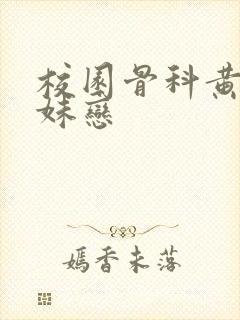 校園骨科黃
妹戀
嫣香未落